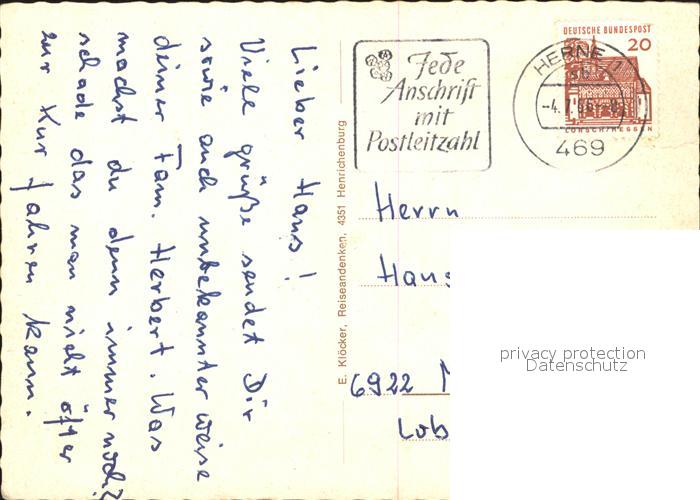 Lieber Hans!
Viele grüße sendet Dir
sowie auch unbekannter weise
deiner Fam. Herbert. Was
machst du denn immer noch?
schade das man nicht öfter
zur Kur fahren kann.
E. Klöcker, Reiseandenken, 4351 Henrichenburg
Jede
Anschrift
mit
Postleitzahl
HERNE 1
sb
-4.7.66-8
469
DEUTSCHE BUNDESPOST
20
LORSCH/HESSEN
Herrn
Hans
6922
Lob
privacy protection
Datenschutz